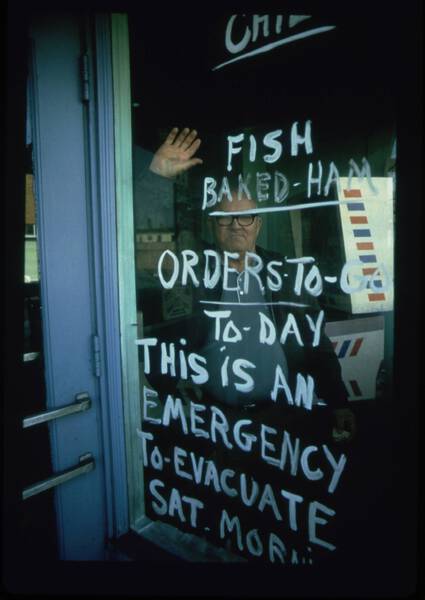 FISH
BAKED-HAM
ORDERS-TO-GO
TO-DAY
THIS IS AN
EMERGENCY
TO-EVACUATE
SAT-MORN